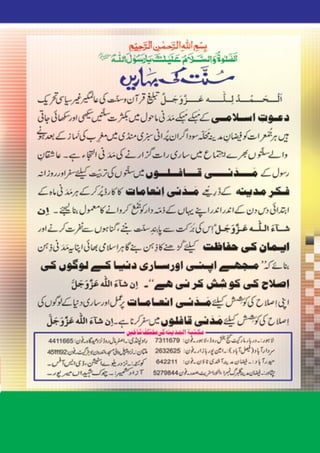 بِسْمِ اللہِ الرَّحْمٰنِ الرَّحِیْمِ
اَلصَّلٰوۃُ وَالسَّلَامُ عَلَیْكَ یَارَسُوْلَ اللہ
سُنّت کی بہاریں
اَلْحَمْدُ لِلّٰہ عَزَّوَجَلَّ تبلیغِ قرآن و سنّت کی عالمگیر غیر سیاسی تحریک
دعوتِ اسلامی کے مہکے مہکے مَدَنی ماحول میں بکثرت سنّتیں سیکھی اور سکھائی جاتی
ہیں، ہر جُمعرات کو فیضانِ مدینہ محلّہ سوداگران پُرانی سبزی منڈی میں مغرب کی نَماز کے بعد ہونے
والے سنّتوں بھرے اجتماع میں ساری رات گزارنے کی مَدَنی التجا ہے۔ عاشقانِ
رسول کے مَدَنی قافلوں میں سنّتوں کی تربیت کیلئے سفر اور روزانہ
فکرِ مدینہ کے ذریعے مَدَنی انعامات کا کارڈ پُر کر کے ہر مَدَنی ماہ کے
ابتدائی دس دن کے اندر اندر اپنے یہاں کے ذمّہ دار کو جمع کروانے کا معمول بنا لیجئے۔ اِن
شَآءَ اللہ عَزَّوَجَلَّ اِس کی بَرَکت سے پابندِ سنّت بننے، گناہوں سے نفرت کرنے اور
ایمان کی حفاظت کیلئے کُڑھنے کا ذِہن بنے گا، ہر اسلامی بھائی اپنا یہ مَدَنی ذِہن
بنائے کہ "مجھے اپنی اور ساری دنیا کے لوگوں کی
اِصلاح کی کوشش کرنی ہے"۔ اِن شَآءَ اللہ عَزَّوَجَلَّ
اپنی اِصلاح کی کوشش کیلئے مَدَنی انعامات پر عمل اور ساری دنیا کے لوگوں کی
اِصلاح کی کوشش کیلئے مَدَنی قافلوں میں سفر کرنا ہے۔ اِن شَآءَ اللہ عَزَّوَجَلَّ
مکتبۃ المدینہ کی مختلف شاخیں
7311679
4411665
2632625
4511192
642211
5279844